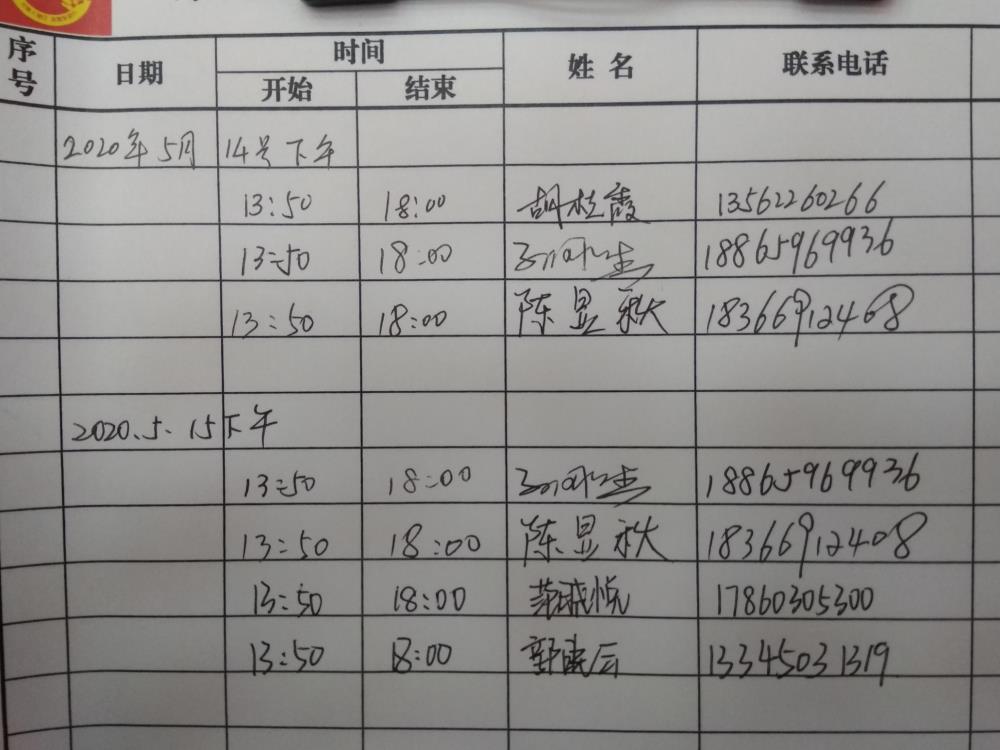 序号 日期 时间 姓 名 联系电话
开始 结束
2020年5月 14号下午
13:50 18:00 胡桂霞 13562260266
13:50 18:00 18865969936
13:50 18:00 陈昱秋 18366912468
2020.5.15下午
13:50 18:00 18865969936
13:50 18:00 陈昱秋 18366912408
13:50 18:00 17860305300
13:50 18:00 13345031319